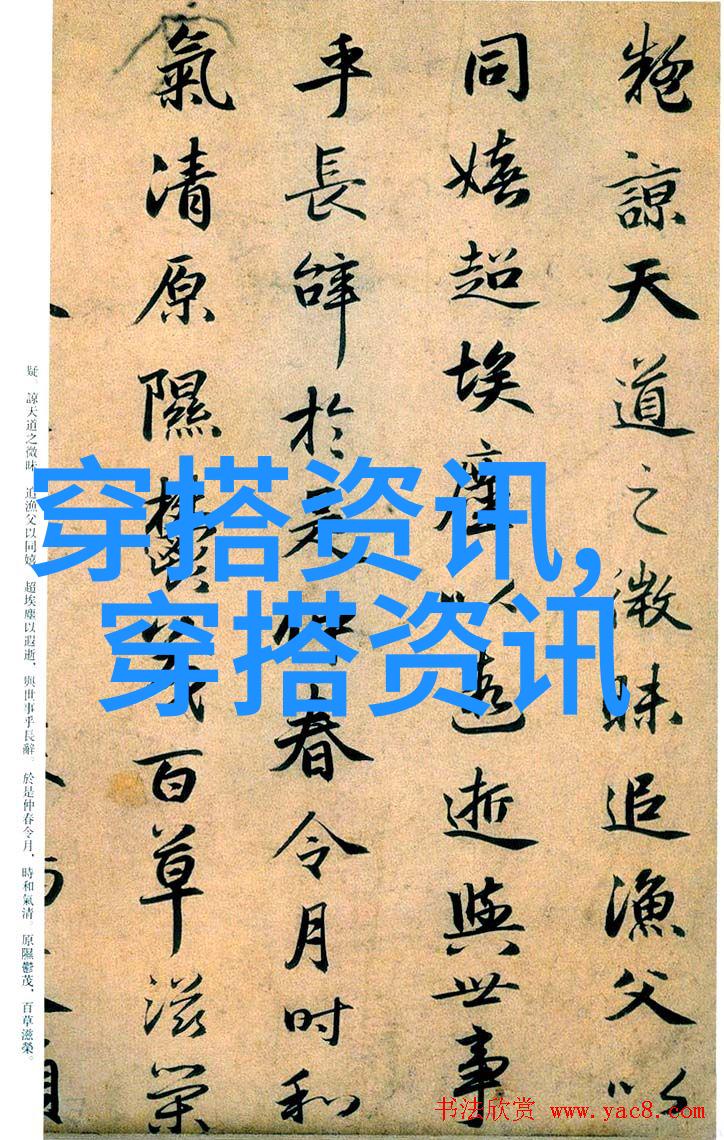 疑諒天道之微昧追漁父以
同嬉超埃塵以遐逝與世事
乎長辭於是仲春令月時和
氣清原隰鬱茂百草滋榮
疑。諒天道之微昧,追漁父以同嬉。超埃塵以遐逝,與世事乎長辭。於是仲春令月,時和氣清。原隰鬱茂,百草滋榮。
穿搭资讯,
穿搭资讯
书法欣赏 www.yac8.com